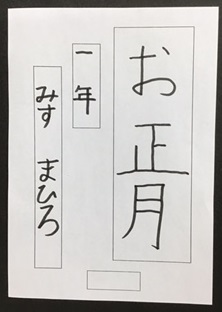 お正月
一年
みす まひろ